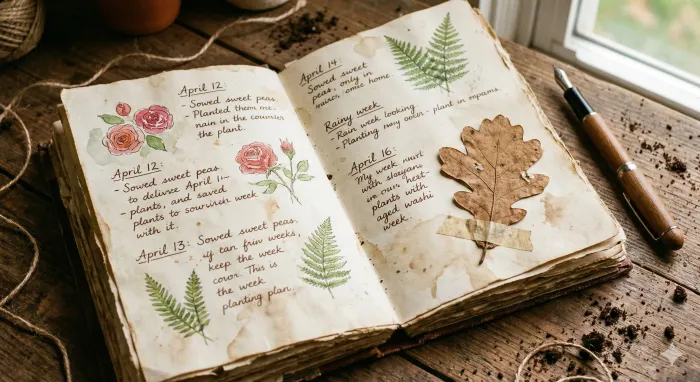 April 12:
- Sowed sweet peas.
- Planted them me-
nain in the counsies
the plant.
April 12:
- Sowed sweet peas
to delivze April 11-
- plants, and saved
plants to sourish week
with it.
April 13: Sowed sweet peas.
if can friw weeks,
keep the week
covor. This is
the week
planting plan.
April 14
Sowed sweet
peas, only in
home.
Rainy week
- Rain week looking
- Planting navy - plant in
April 16:
My week
with
in our heat-
plants with
aged washi
week.